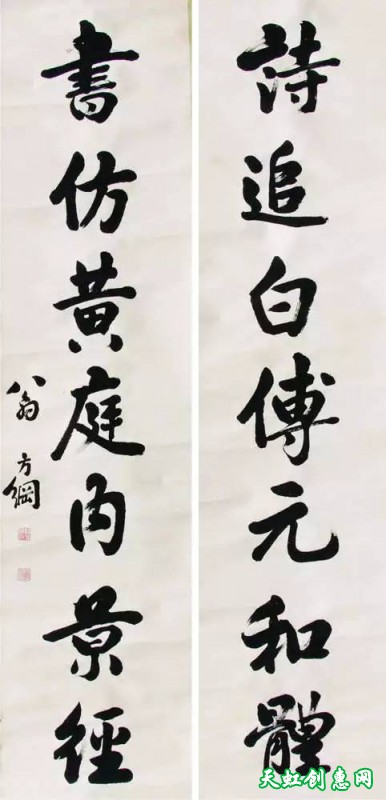 詩追白傅元和體
書仿黃庭內景經
翁方綱
天虹创惠网